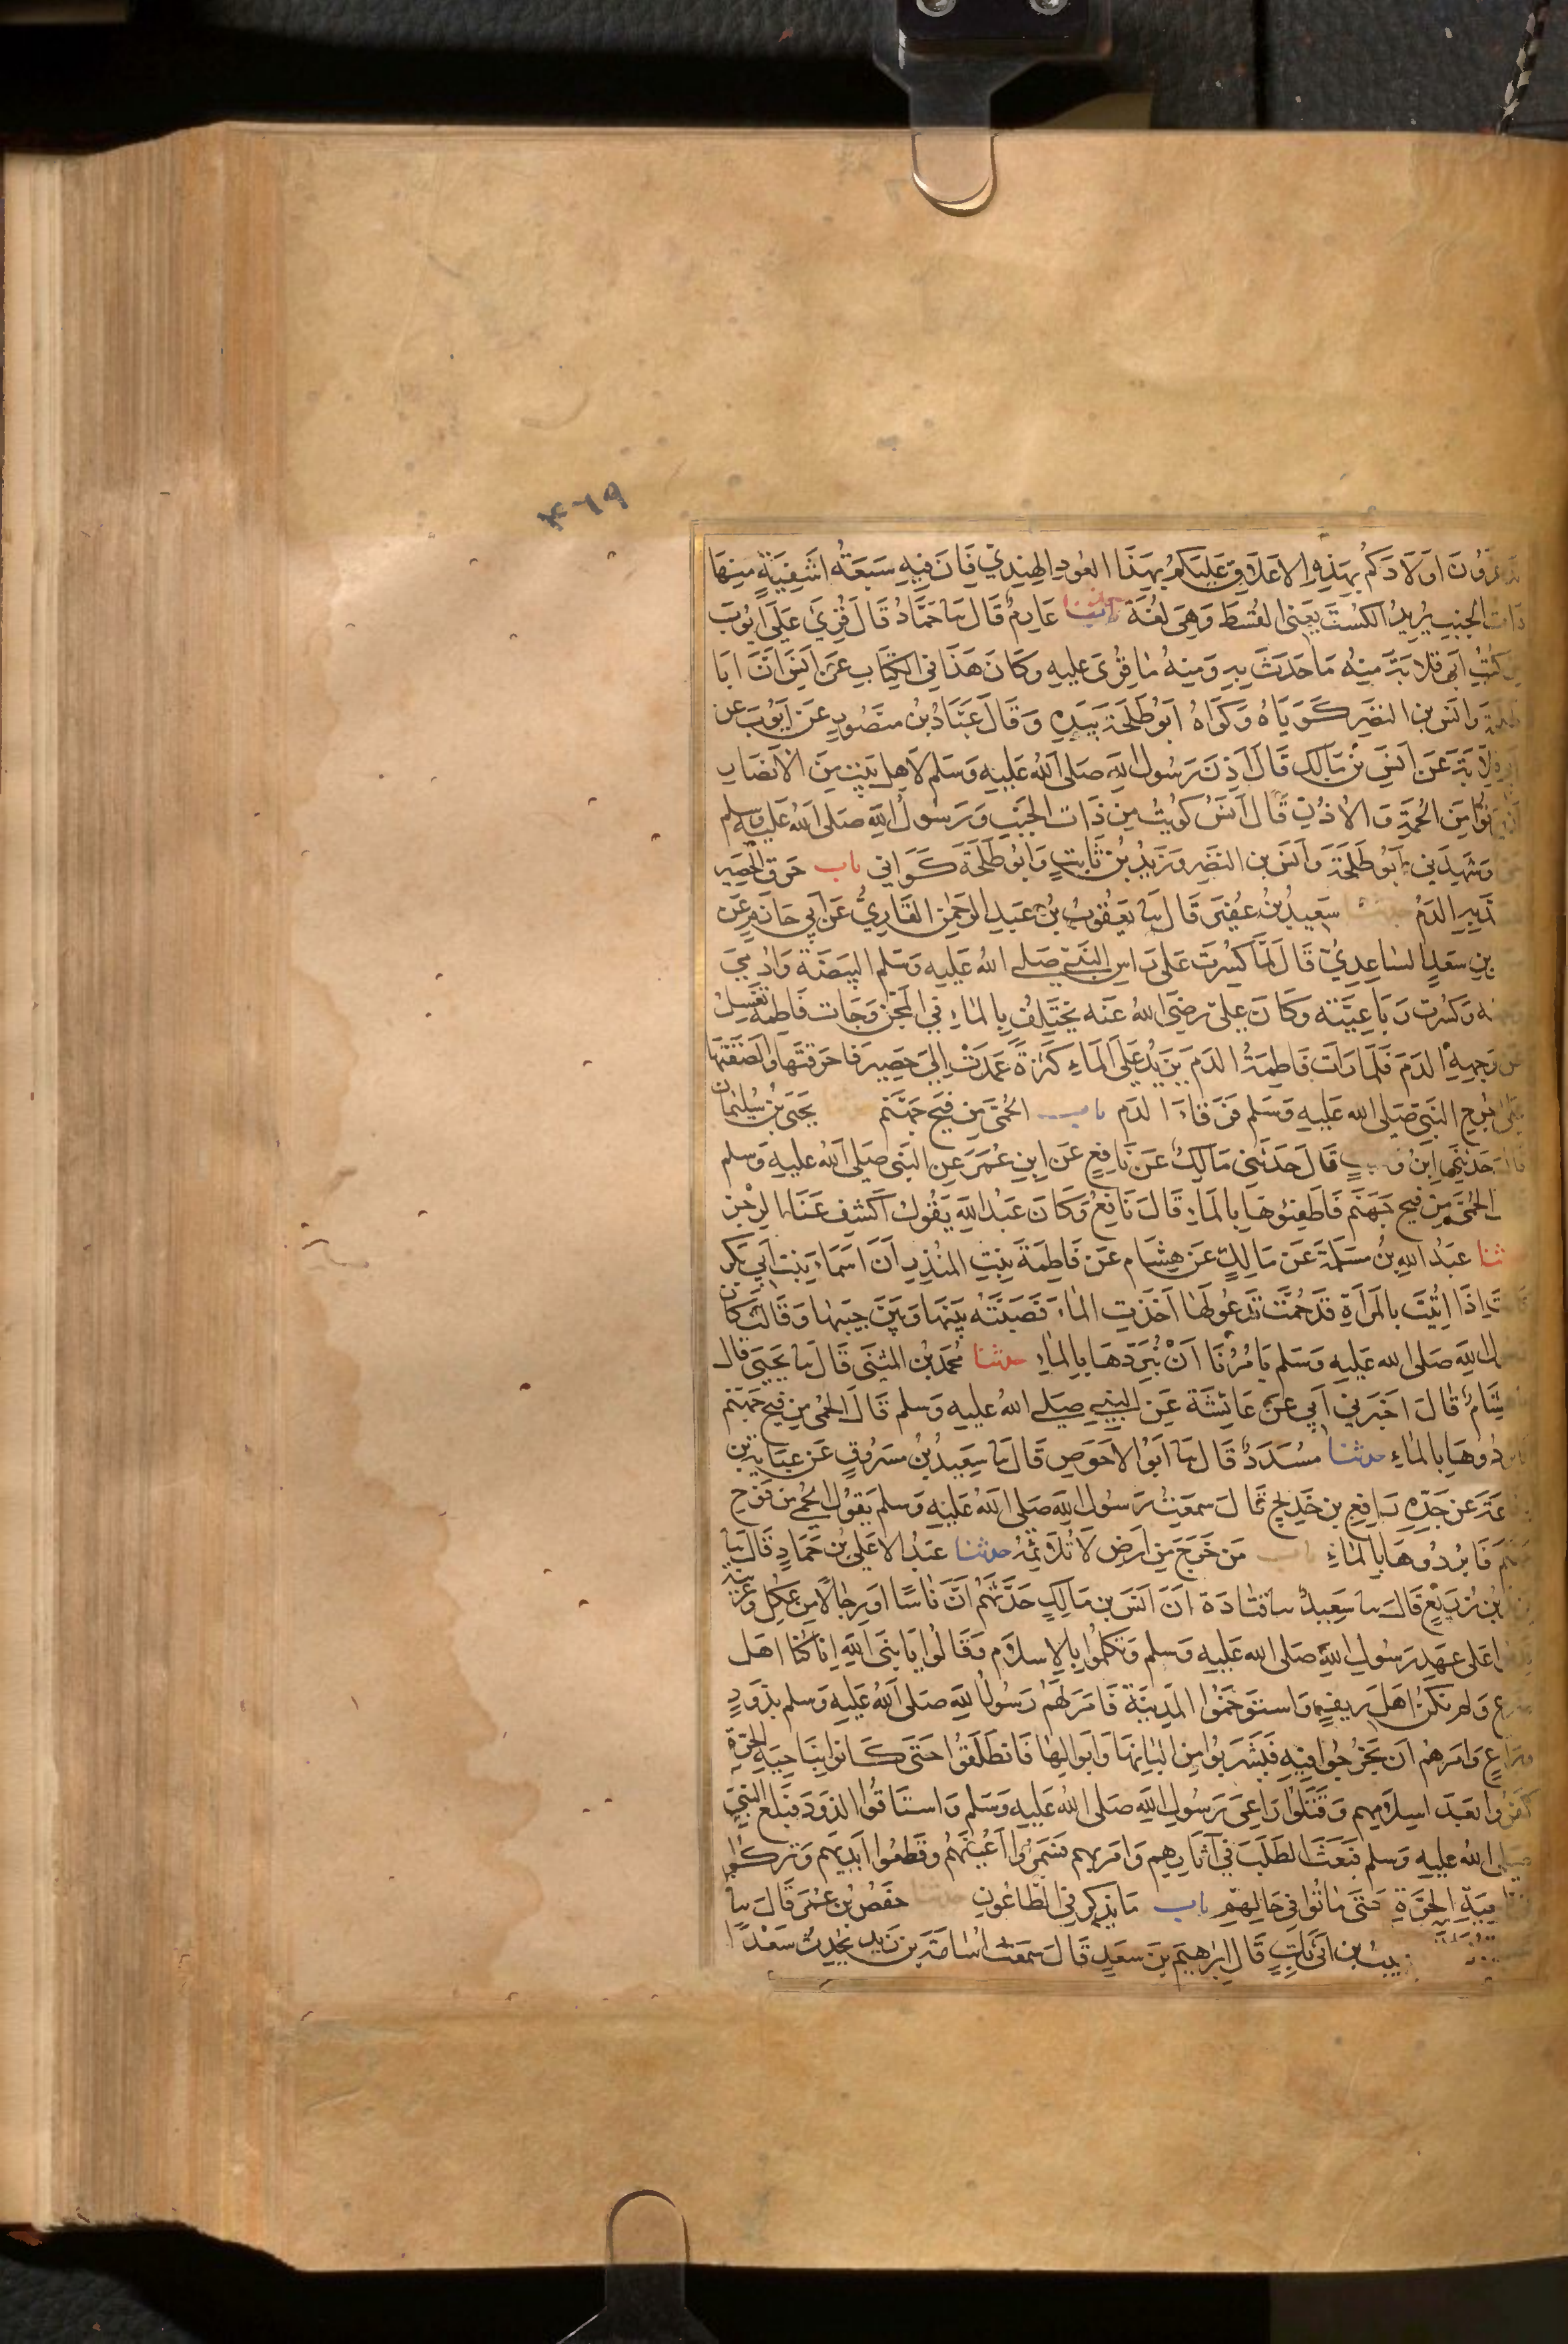 ٤٦٩
تدغرون اولادكم بهذه الاعلاق عليكم بهذا العود الهندي فان فيه سبعة اشفية منها
ذات الجنب يريد الكست يعني القسط وهي لغة حدثنا عارم قال نا حماد قال قرئ على ايوب
من كتب ابي قلابة منه ما حدث به ومنه ما قرئ عليه وكان هذا في الكتاب عن انس ان ابا
طلحة وانس بن النضر كوياه وكواه ابو طلحة بيده وقال عباد بن منصور عن ايوب عن
ابي قلابة عن انس بن مالك قال اذن رسول الله صلى الله عليه وسلم لاهل بيت من الانصار
ان يرقوا من الحمة والاذن قال انس كويت من ذات الجنب ورسول الله صلى الله عليه وسلم
حي وشهدني ابو طلحة وانس بن النضر وزيد بن ثابت وابو طلحة كواني باب حرق الحصير
الدم حدثنا سعيد بن عفير قال نا يعقوب بن عبد الرحمن القاري عن ابي حازم عن
بن سعد الساعدي قال لما كسرت على راس النبي صلى الله عليه وسلم البيضة وادمي
وجهه وكسرت رباعيته وكان علي رضي الله عنه يختلف بالماء في المجن وجات فاطمة تغسل
عن وجهه الدم فلما رات فاطمة الدم يزيد على الماء كثرة عمدت الى حصير فاحرقتها والصقتها
على جرح النبي صلى الله عليه وسلم فرقاء الدم باب الحمى من فيح جهنم يحيى بن سليمان
قال حدثني ابن وهب قال حدثني مالك عن نافع عن ابن عمر عن النبي صلى الله عليه وسلم
الحمى من فيح جهنم فاطفئوها بالماء قال نافع وكان عبد الله يقول اكشف عنا الرجز
ثنا عبد الله بن مسلمة عن مالك عن هشام عن فاطمة بنت المنذر ان اسماء بنت ابي بكر
كانت اذا اتيت بالمراة قد حمت تدعو لها اخذت الماء فصبته بينها وبين جيبها وقالت كان
رسول الله صلى الله عليه وسلم يامرنا ان نبردها بالماء حدثنا محمد بن المثنى قال نا يحيى قال
نا هشام قال اخبرني ابي عن عائشة عن النبي صلى الله عليه وسلم قال الحمى من فيح جهنم
فابردوها بالماء حدثنا مسدد قال نا ابو الاحوص قال نا سعيد بن مسروق عن عباية بن
رفاعة عن جده رافع بن خديج قال سمعت رسول الله صلى الله عليه وسلم يقول الحمى من فوح
جهنم فابردوها بالماء باب من خرج من ارض لا تلائمه حدثنا عبد الاعلى بن حماد قال نا
يزيد بن زريع قال نا سعيد نا قتادة ان انس بن مالك حدثهم ان ناسا او رجالا من عكل وعرينة
قدموا على عهد رسول الله صلى الله عليه وسلم وتكلموا بالاسلام وقالوا يا نبي الله انا كنا اهل
ضرع ولم نكن اهل ريف واستوخموا المدينة فامر لهم رسول الله صلى الله عليه وسلم بذود
وراع وامرهم ان يخرجوا فيه فيشربوا من البانها وابوالها فانطلقوا حتى كانوا بناحية الحرة
كفروا بعد اسلامهم وقتلوا راعي رسول الله صلى الله عليه وسلم واستاقوا الذود فبلغ النبي
صلى الله عليه وسلم فبعث الطلب في آثارهم وامر بهم فسمروا اعينهم وقطعوا ايديهم وتركوا
في ناحية الحرة حتى ماتوا في حالهم باب ما يذكر في الطاعون حدثنا حفص بن عمر قال نا
حبيب بن ابي ثابت قال ابراهيم بن سعد قال سمعت اسامة بن زيد يحدث سعدا